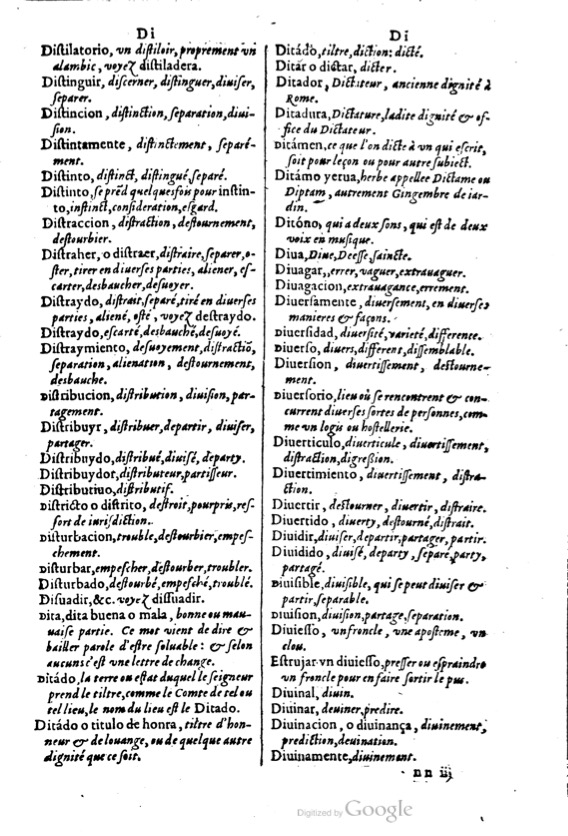 Di
Distilatorio, vn distiloir, proprement vn
alambic, voyez distiladera.
Distinguir, discerner, distinguer, diuiser,
separer.
Distincion, distinction, separation, diui-
sion.
Distintamente, distinctement, separé-
ment.
Distinto, distinct, distingué, separé.
Distinto, se prẽd quelquesfois pour instin-
to, instinct, consideration, esgard.
Distraccion, distraction, destournement,
destourbier.
Distraher, o distraer, distraire, separer, o-
ster, tirer en diuerses parties, aliener, es-
carter, desbaucher, desuoyer.
Distraydo, distrait, separé, tiré en diuerses
parties, aliené, osté, voyez destraydo.
Distraydo, escarté, desbauché, desuoyé.
Distraymiento, desuoyement, distractiõ,
separation, alienation, destournement,
desbauche.
Distribucion, distribution, diuision, par-
tagement.
Distribuyr, distribuer, departir, diuiser,
partager.
Distribuydo, distribué, diuisé, departy.
Distribuydor, distributeur, partisseur.
Distributiuo, distributif.
Districto o distrito, destroit, pourpris, res-
sort de iurisdiction.
Disturbacion, trouble, destourbier, empes-
chement.
Disturbar, empescher, destourber, troubler.
Disturbado, destourbé, empesché, troublé.
Disuadir, &c. voyez dissuadir.
Dita, dita buena o mala, bonne ou mau-
uaise partie. Ce mot vient de dire &
bailler parole d'estre soluable: & selon
aucuns c'est vne lettre de change.
Ditádo, la terre ou estat duquel le seigneur
prend le tiltre, comme le Comte de tel ou
tel lieu, le nom du lieu est le Ditado.
Ditádo o titulo de honra, tiltre d'hon-
neur & de louange, ou de quelque autre
dignité que ce soit.
Di
Ditádo, tiltre, diction: dicté.
Ditár o dictar, dicter.
Ditador, Dictateur, ancienne dignité à
Rome.
Ditadura, Dictature, ladite dignité & of-
fice du Dictateur.
Ditámen, ce que l'on dicte à vn qui escrit,
soit pour leçon ou pour autre subiect.
Ditámo yerua, herbe appellee Dictame ou
Diptam, autrement Gingembre de iar-
din.
Ditóno, qui a deux sons, qui est de deux
voix en musique.
Diua, Diue, Deesse, saincte.
Diuagar,, errer, vaguer, extrauaguer.
Diuagacion, extrauagance, errement.
Diuersamente, diuersement, en diuerses
manieres & façons.
Diuersidad, diuersité, varieté, difference.
Diuerso, diuers, different, dissemblable.
Diuersion, diuertissement, destourne-
ment.
Diuersorio, lieu où se rencontrent & con-
currrent diuerses sortes de personnes, com-
me vn logis ou hostellerie.
Diuerticulo, diuerticule, diuertissement,
distraction, digression.
Diuertimiento, diuertissement, distra-
ction.
Diuertir, destourner, diuertir, distraire.
Diuertido, diuerty, destourné, distrait.
Diuidir, diuiser, departir, partager, partir.
Diuidido, diuisé, departy, separé, party,
partagé.
Diuisible, diuisible, qui se peut diuiser &
partir, separable.
Diuision, diuision, partage, separation.
Diuiesso, vn froncle, vne aposteme, vn
clou.
Estrujar vn diuiesso, presser ou espraindre
vn froncle pour en faire sortir le pus.
Diuinal, diuin.
Diuinar, deuiner, predire.
Diuinacion, o diuinança, diuinement,
prediction, deuination.
Diuinamente, diuinement.
nn iij
Digitized by Google